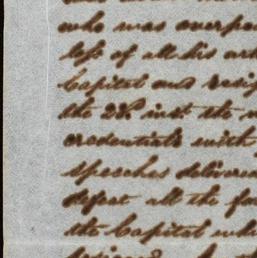 who was overpo
loss of all his art
Capital and resig
the 28th inst. the
credentials with
speeches delivered
defeat all the fo
the Capital whi